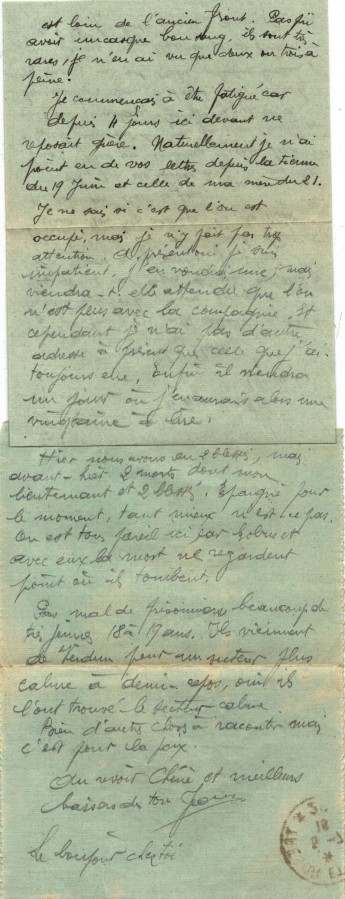 est loin de l'ancien front. Pas fü
avoir un casque bon sang, ils sont très
rares, je n'en ai vu que deux ou trois à
peine.
Je commençais à être fatigué car
depuis 4 jours ici devant ne
reposait guère. Naturellement je n'ai
point eu de vos lettres depuis la tienne
du 19 Juin et celle de ma mère du 21.
Je ne sais si c'est que l'on est
occupé, mais je n'y fait pas trop
attention. A présent oui je suis
impatient, j'en voudrais une, mais
viendra-t-elle attendu que l'on
n'est plus avec la compagnie. Et
cependant je n'ai pas d'autre
adresse à présent que celle que j'ai
toujours eue. Enfin il viendra
un jour où j'en aurais alors une
vingtaine à lire.
Hier nous avons eu 2 blessés, mais
avant-hier 2 morts dont mon
lieutenant et 2 blessés. Epargné pour
le moment, tant mieux n'est ce pas.
On est tous pareil ici par
avec eux la mort ne regardent
point où ils tombent.
Pas mal de prisonniers beaucoup de
très jeunes 18 à 19 ans. Ils viennent
de Verdun pour un secteur plus
calme à demi-repos, oui ils
l'ont trouvé le secteur calme.
Rien d'autre chose à raconter mais
c'est pour la paix.
Au revoir Chérie et meilleurs
baisers de ton
Le bonjour chez toi